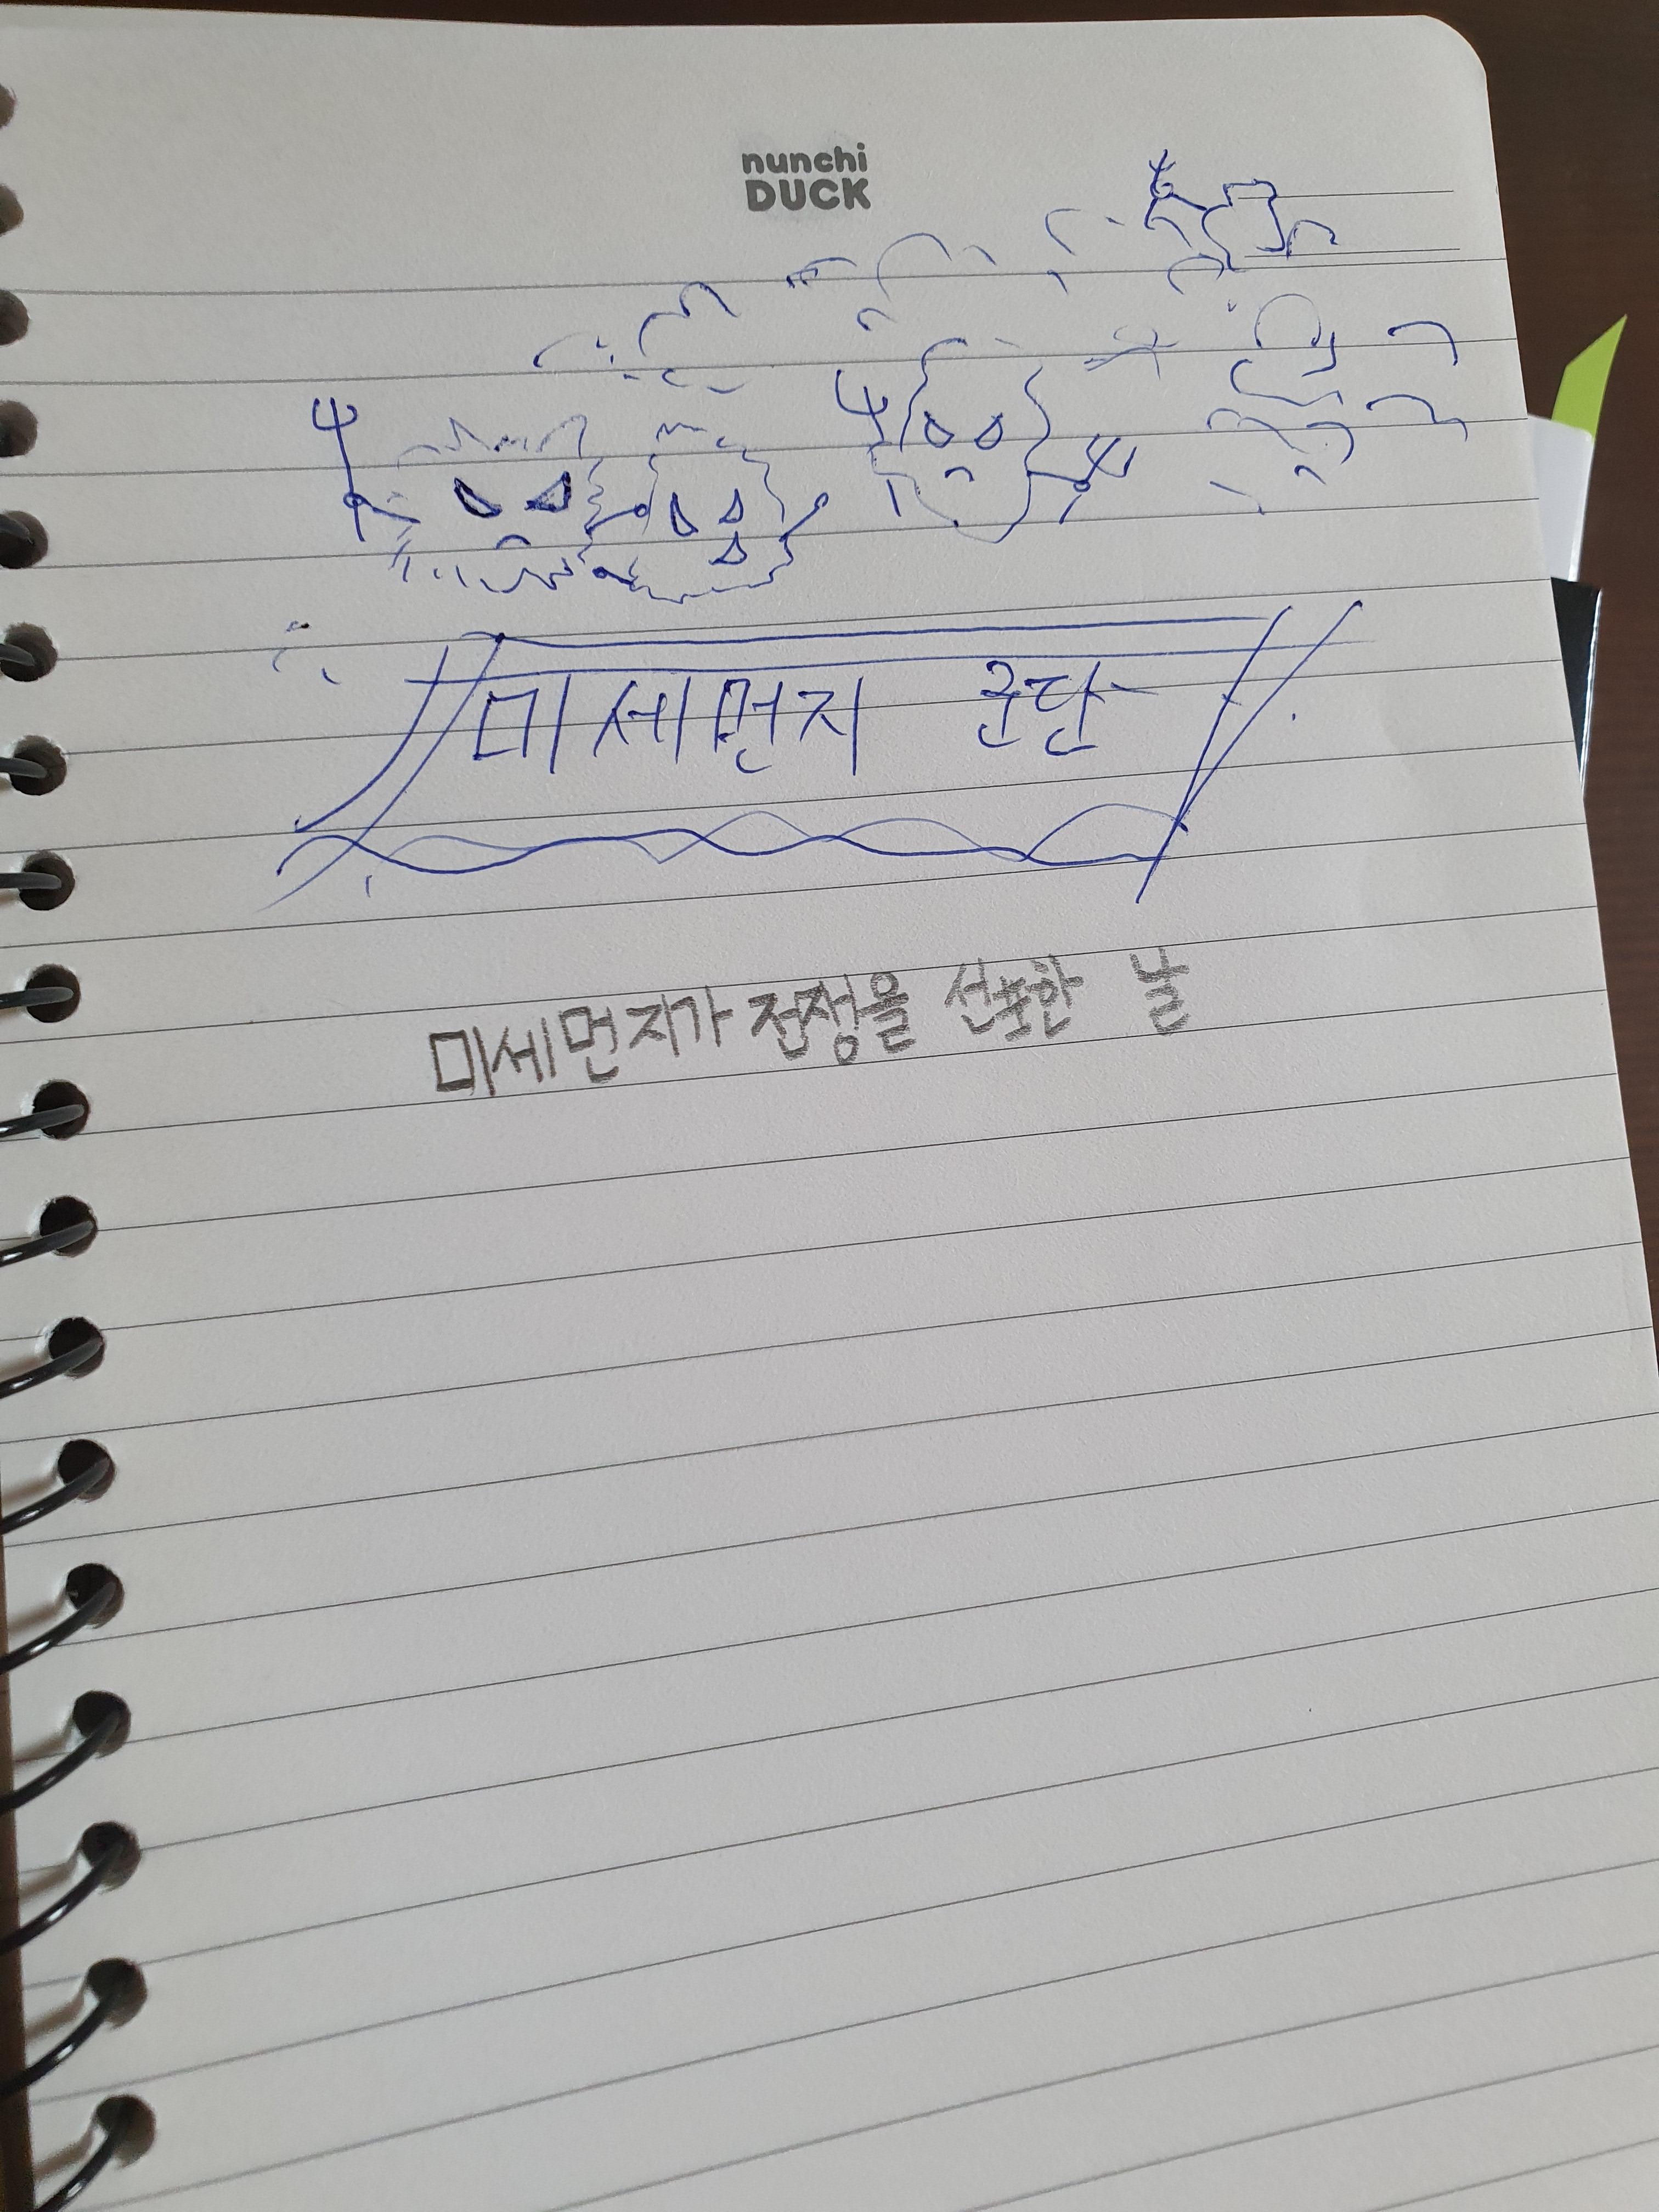 nunchi
DUCK
미세먼지 군단
미세먼지가 전쟁을 선포한 날